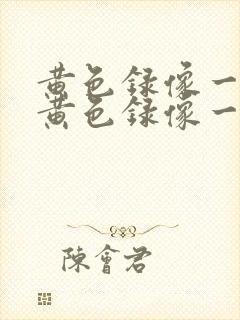 黄色録像一
黄色録像一
陳會君